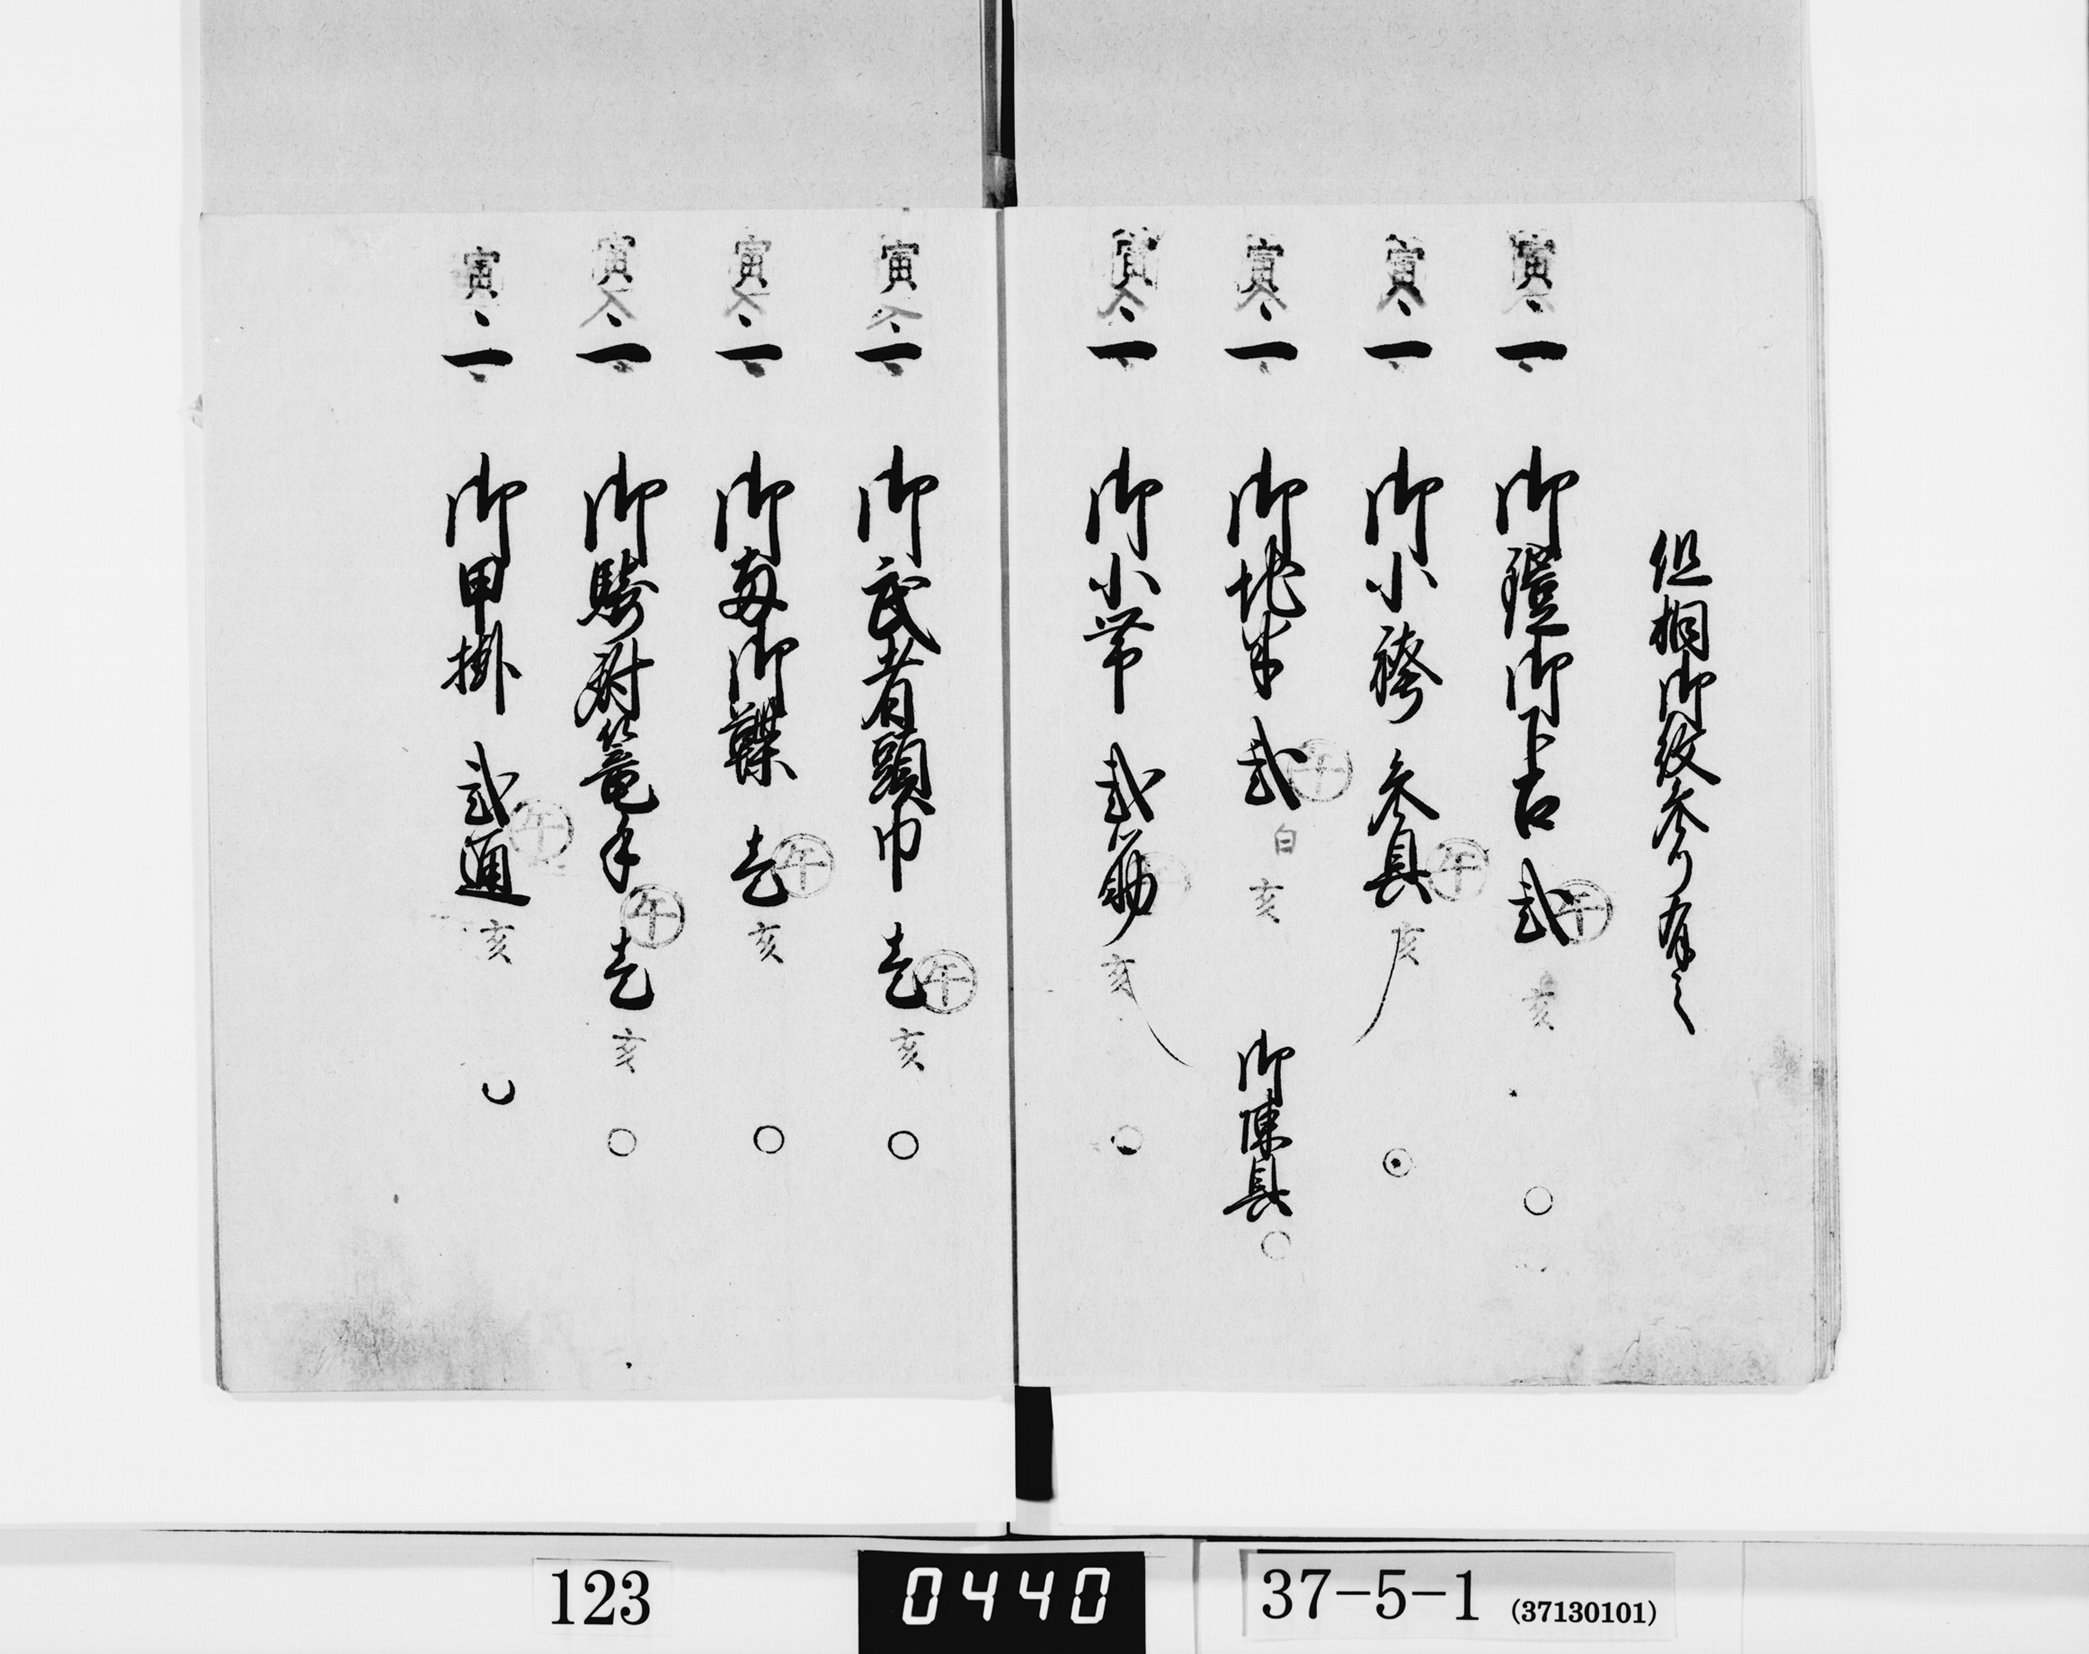 但桐御紋参り有之
寅 一 御鎧御下召 弐 午 亥
寅 一 御小袴 参具 午 亥
寅 一 御 弐 午 白 亥 御陳具
寅 一 御小帯 弐筋 亥
寅 一 御武者頭巾 壱 午 亥
寅 一 御両御 壱 午 亥
寅 一 御 篭手 壱 午 亥
寅 一 御甲掛 弐通 午 亥
123
0440
37-5-1 (37130101)